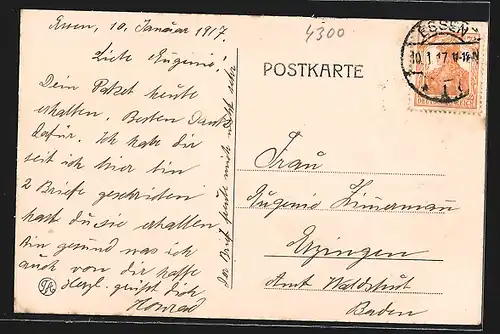 Essen, 10. Januar 1917.
Liebe Eugenie!
Dein Paket heute
erhalten. Besten Dank
dafür. Ich hab dir
seit ich hier bin
2 Briefe geschrieben
hast du sie erhalten
Bin gesund was ich
auch von dir hoffe
Herzl. grüßt dich
Konrad
Der Brief freute mich sehr
4300
POSTKARTE
ESSEN
10.1.17.11-12N
DEUTSCHES REICH
Frau
Eugenie Zimmermann
Erzingen
Amt Waldshut
Baden